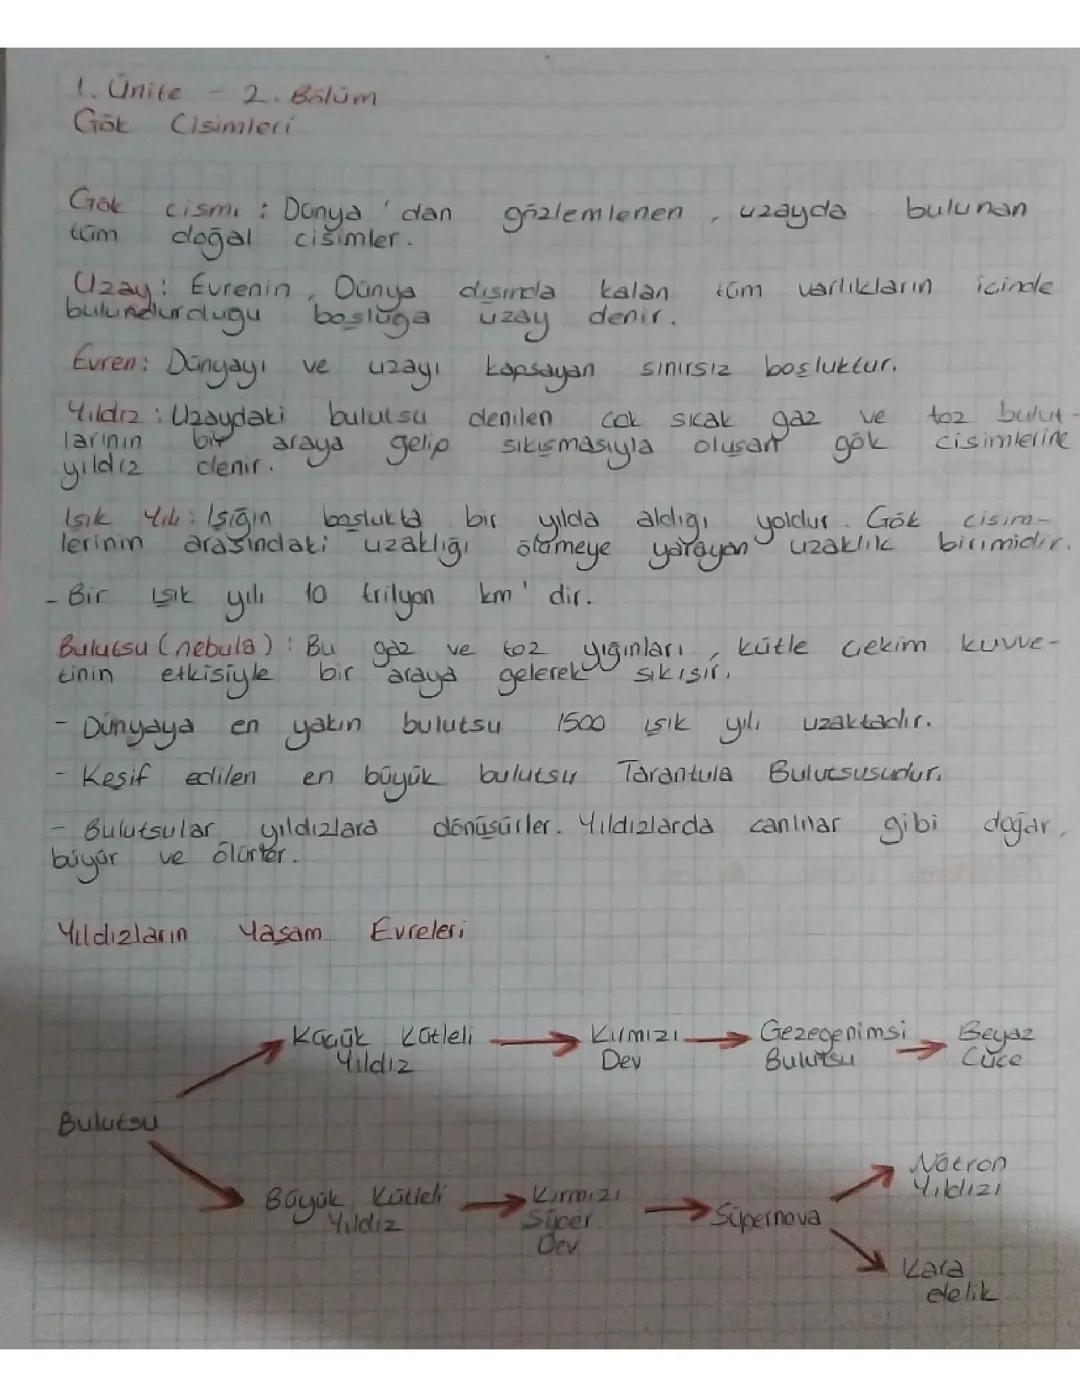 1. Ünite - 2. Bölüm
Gök Cisimleri
Gök cismi : Dünya'dan gözlemlenen , uzayda bulunan
tüm doğal cisimler.
Uzay: Evrenin , Dünya dışında kalan tüm varlıkların içinde
bulundurduğu boşluğa uzay denir.
Evren: Dünyayı ve uzayı kapsayan sınırsız boşluktur.
Yıldız : Uzaydaki bulutsu denilen çok sıcak gaz ve toz bulut-
larının bir araya gelip sıkışmasıyla oluşan gök cisimlerine
yıldız denir.
Işık Yılı : Işığın boşlukta bir yılda aldığı yoldur. Gök cisim-
lerinin arasındaki uzaklığı ölçmeye yarayan uzaklık birimidir.
- Bir ışık yılı 10 trilyon km'dir.
Bulutsu (nebula) : Bu gaz ve toz yığınları , kütle çekim kuvve-
tinin etkisiyle bir araya gelerek sıkışır.
- Dünyaya en yakın bulutsu 1500 ışık yılı uzaktadır.
- Keşif edilen en büyük bulutsu Tarantula Bulutsusudur.
- Bulutsular yıldızlara dönüşürler. Yıldızlarda canlılar gibi doğar,
büyür ve ölürler.
Yıldızların Yaşam Evreleri
Küçük Kütleli Yıldız
Kırmızı Dev
Gezegenimsi Bulutsu
Beyaz Cüce
Bulutsu
Büyük Kütleli Yıldız
Kırmızı Süper Dev
Süpernova
Nötron Yıldızı
Kara delik